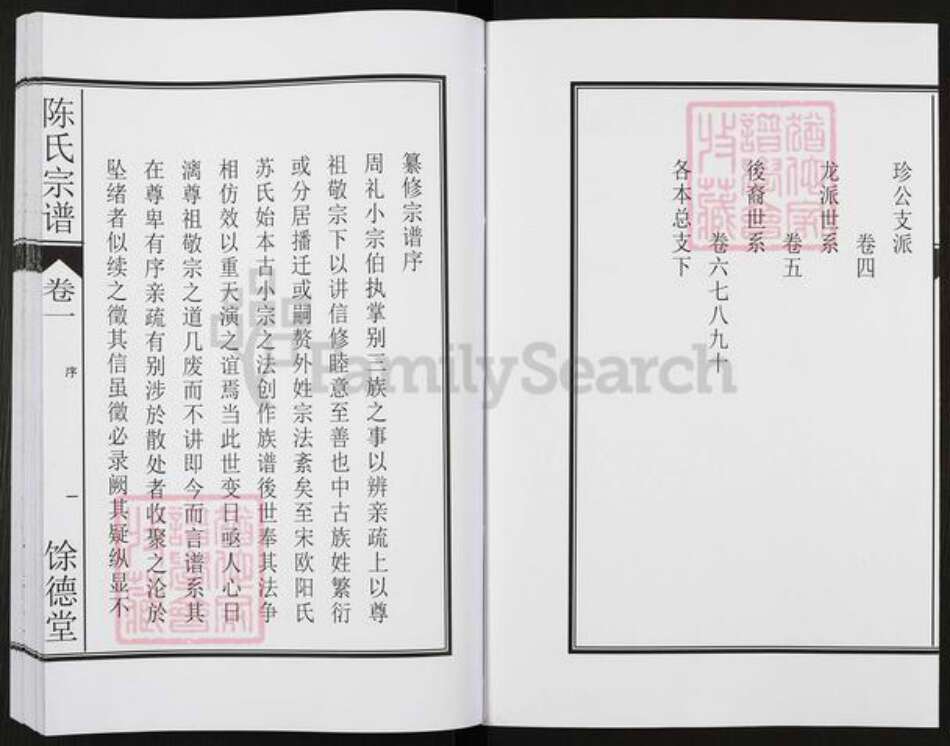 珍公支派
卷四
龙派世系
卷五
後裔世系
卷六七八九十
各本总支下
纂修宗谱序
周礼小宗伯执掌别三族之事以辨亲疏上以尊
祖敬宗下以讲信修睦意至善也中古族姓繁衍
或分居播迁或嗣赘外姓宗法紊矣至宋欧阳氏
苏氏始本古小宗之法创作族谱後世奉其法争
相仿效以重天演之谊焉当此世变日亟人心日
漓尊祖敬宗之道几废而不讲即今而言谱系其
在尊卑有序亲疏有别涉於散处者收聚之沦於
坠绪者似续之徵其信虽微必录阙其疑纵显不
陈氏宗谱
卷一
序
一
馀德堂
FamilySearch